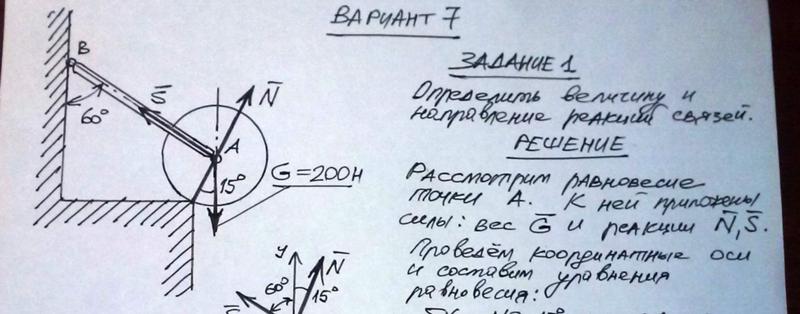 ВАРИАНТ 7
ЗАДАНИЕ 1
Определить величину и
направление реакций связей.
РЕШЕНИЕ
Рассмотрим равновесие
точки А. К ней приложены
силы: вес G̅ и реакции N̅, S̅.
Проведём координатные оси
и составим уравнения
равновесия:
B
S̅
N̅
60°
A
15°
G̅=200Н
y
N̅
60°
15°